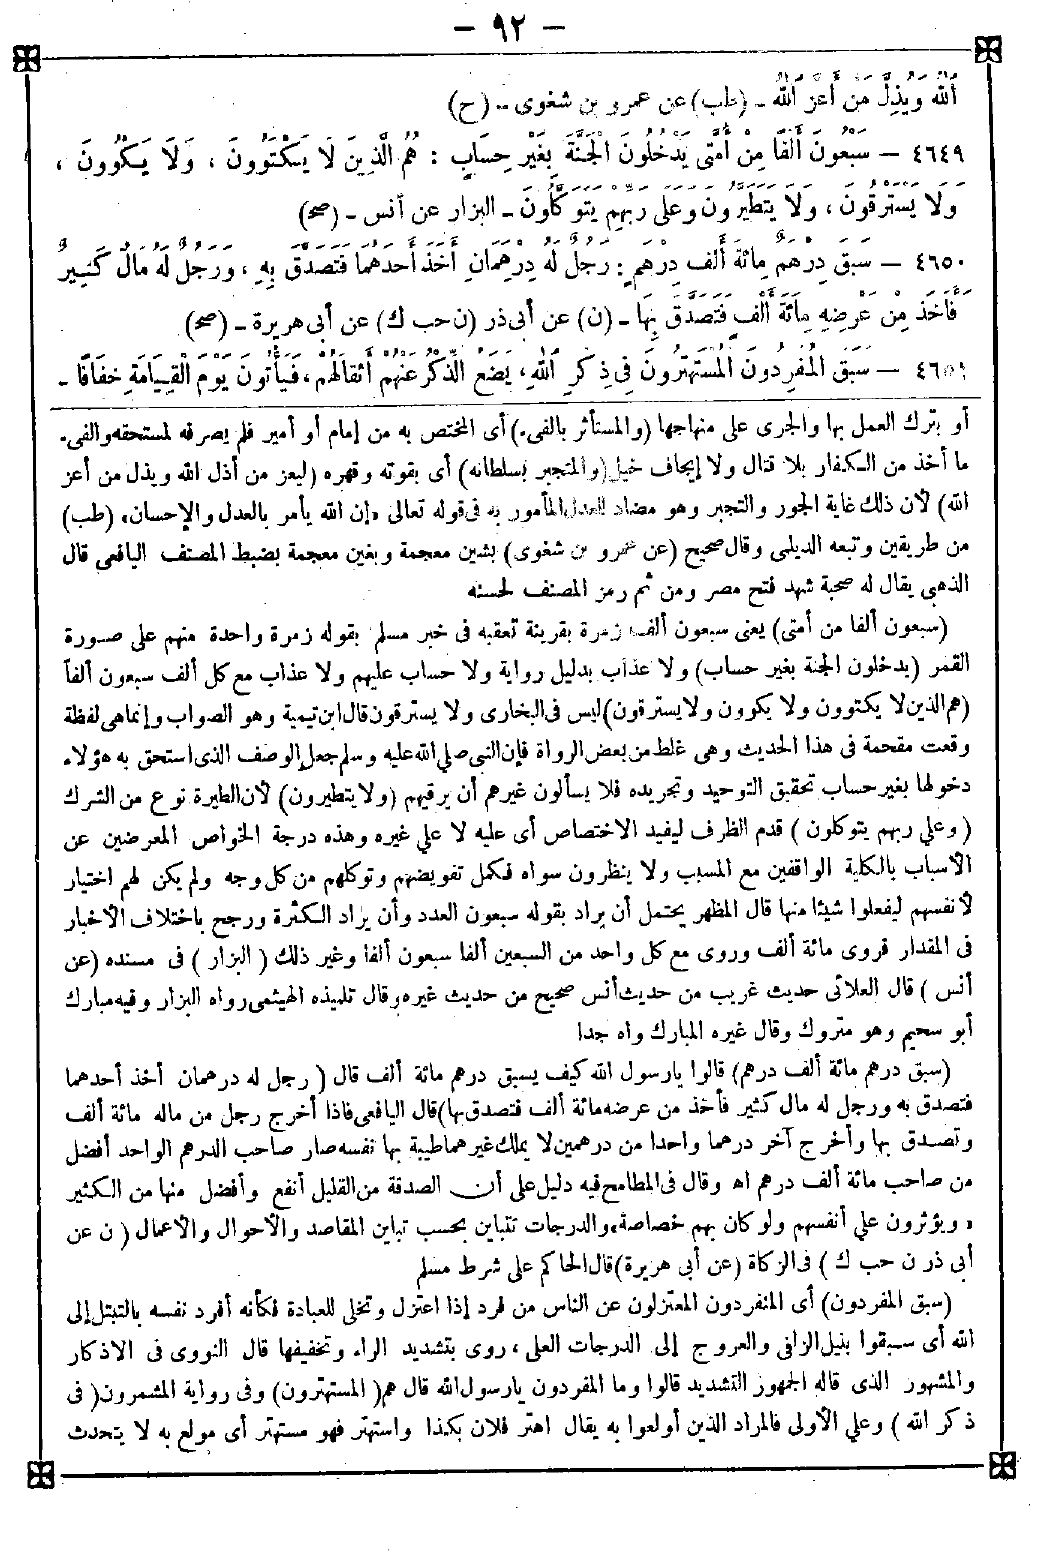 - ٩٢ -
اللهُ وَيُذِلَّ مَنْ أَعَزَّ اللهُ - (طب) عن عمرو بن شغوى - (ح)
٤٦٤٩ - سَبْعُونَ أَلْفًا مِنْ أُمَّتِى يَدْخُلُونَ الْجَنَّةَ بِغَيْرِ حِسَابٍ : هُمُ الَّذِينَ لَا يَكْتَوُونَ ، وَلَا يَكْوُونَ ،
وَلَا يَسْتَرْقُونَ ، وَلَا يَتَطَيَّرُونَ وَعَلَى رَبِّهِمْ يَتَوَكَّلُونَ - البزار عن أنس - (صح)
٤٦٥٠ - سَبَقَ دِرْهَمٌ مِائَةَ أَلْفِ دِرْهَمٍ : رَجُلٌ لَهُ دِرْهَمَانِ أَخَذَ أَحَدَهُمَا فَتَصَدَّقَ بِهِ ، وَرَجُلٌ لَهُ مَالٌ كَثِيرٌ
فَأَخَذَ مِنْ عَرْضِهِ مِائَةَ أَلْفٍ فَتَصَدَّقَ بِهَا - (ن) عن أبى ذر (ن حب ك) عن أبى هريرة - (صح)
٤٦٥١ - سَبَقَ الْمُفَرِّدُونَ الْمُسْتَهْتَرُونَ فِى ذِكْرِ اللهِ ، يَضَعُ الذِّكْرُ عَنْهُمْ أَثْقَالَهُمْ ، فَيَأْتُونَ يَوْمَ الْقِيَامَةِ خِفَافًا -
أو بترك العمل بها والجرى على منهاجها (والمستأثر بالفىء) أى المختص به من إمام أو أمير فلم يصرفه لمستحقه والفىء
ما أخذ من الكفار بلا قتال ولا إيجاف خيل (والمتجبر بسلطانه) أى بقوته وقهره (ليعز من أذل الله ويذل من أعز
الله) لأن ذلك غاية الجور والتجبر وهو مضاد للعدل المأمور به فى قوله تعالى «إن الله يأمر بالعدل والإحسان» (طب)
من طريقين وتبعه الديلمى وقال صحيح (عن عمرو بن شغوى) بشين معجمة وبغين معجمة بضبط المصنف اليافعى قال
الذهبى يقال له صحبة شهد فتح مصر ومن ثم رمز المصنف لحسنه
(سبعون ألفا من أمتى) يعنى سبعون ألف زمرة بقرينة تعقبه فى خبر مسلم بقوله زمرة واحدة منهم على صورة
القمر (يدخلون الجنة بغير حساب) ولا عذاب بدليل رواية ولا حساب عليهم ولا عذاب مع كل ألف سبعون ألفاً
(هم الذين لا يكتوون ولا يكوون ولا يسترقون) ليس فى البخارى ولا يسترقون قال ابن تيمية وهو الصواب وإنما هى لفظة
وقعت مقحمة فى هذا الحديث وهى غلط من بعض الرواة فإن النبى صلى الله عليه وسلم جعل الوصف الذى استحق به هؤلاء
دخولها بغير حساب تحقيق التوحيد وتجريده فلا يسألون غيرهم أن يرقيهم (ولا يتطيرون) لأن الطيرة نوع من الشرك
( وعلى ربهم يتوكلون ) قدم الظرف ليفيد الاختصاص أى عليه لا على غيره وهذه درجة الخواص المعرضين عن
الأسباب بالكلية الواقفين مع المسبب ولا ينظرون سواه فكمل تفويضهم وتوكلهم من كل وجه ولم يكن لهم اختيار
لأنفسهم ليفعلوا شيئا منها قال المظهر يحتمل أن يراد بقوله سبعون العدد وأن يراد الكثرة ورجح باختلاف الأخبار
فى المقدار فروى مائة ألف وروى مع كل واحد من السبعين ألفا سبعون ألفا وغير ذلك ( البزار ) فى مسنده (عن
أنس ) قال العلائى حديث غريب من حديث أنس صحيح من حديث غيره وقال تلميذه الهيثمى رواه البزار وفيه مبارك
أبو سحيم وهو متروك وقال غيره المبارك واه جدا
(سبق درهم مائة ألف درهم) قالوا يارسول الله كيف يسبق درهم مائة ألف قال ( رجل له درهمان أخذ أحدهما
فتصدق به ورجل له مال كثير فأخذ من عرضه مائة ألف فتصدق بها) قال اليافعى فاذا أخرج رجل من ماله مائة ألف
وتصدق بها وأخرج آخر درهما واحدا من درهمين لا يملك غيرهما طيبة بها نفسه صار صاحب الدرهم الواحد أفضل
من صاحب مائة ألف درهم اه وقال فى المطامح فيه دليل على أن الصدقة من القليل أنفع وأفضل منها من الكثير
« ويؤثرون على أنفسهم ولو كان بهم خصاصة» والدرجات تتباين بحسب تباين المقاصد والأحوال والأعمال ( ن عن
أبى ذر ن حب ك ) فى الزكاة (عن أبى هريرة) قال الحاكم على شرط مسلم
(سبق المفردون) أى المنفردون المعتزلون عن الناس من فرد إذا اعتزل وتخلى للعبادة فكأنه أفرد نفسه بالتبتل إلى
الله أى سبقوا بنيل الزلفى والعروج إلى الدرجات العلى ، روى بتشديد الراء وتخفيفها قال النووى فى الاذكار
والمشهور الذى قاله الجمهور التشديد قالوا وما المفردون يارسول الله قال هم ( المستهترون) وفى رواية المشمرون( فى
ذكر الله ) وعلى الأولى فالمراد الذين أولعوا به يقال اهتر فلان بكذا واستهتر فهو مستهتر أى مولع به لا يتحدث